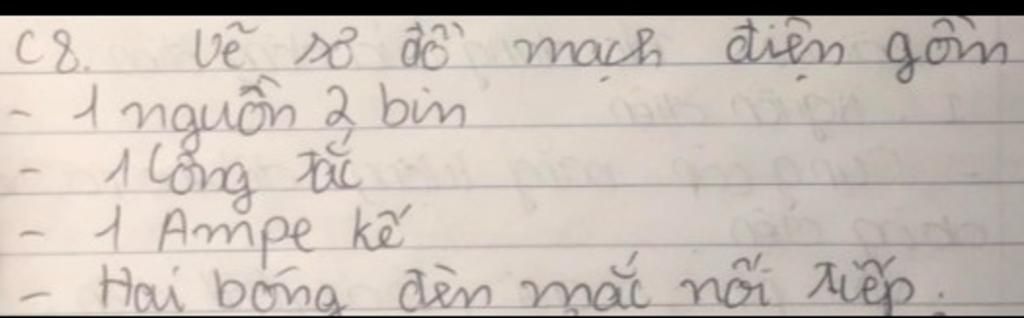 C8. Vẽ sơ đồ mạch điện gồm
- 1 nguồn 2 bin
- 1 Công tắc
- 1 Ampe kế
- Hai bóng đèn mắc nối tiếp.